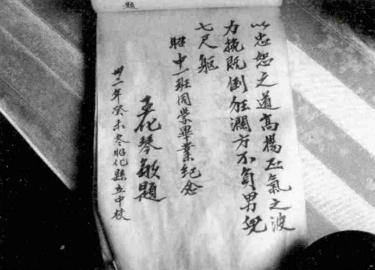 題
以忠恕之道高揚正氣之波
力挽既倒狂瀾方不負男兒
七尺軀
昭中一班同學畢業紀念
化琴敬題
卅二年癸未冬昭化縣立中校